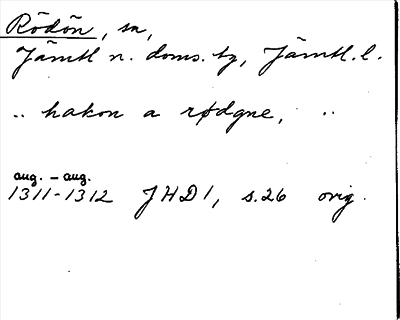 Rödön, sn,
Jämtl n. doms. tg, Jämtl. l.
.. hakon a rødgne, ..
aug. - aug.
1311-1312 JHD 1, s.26 orig.